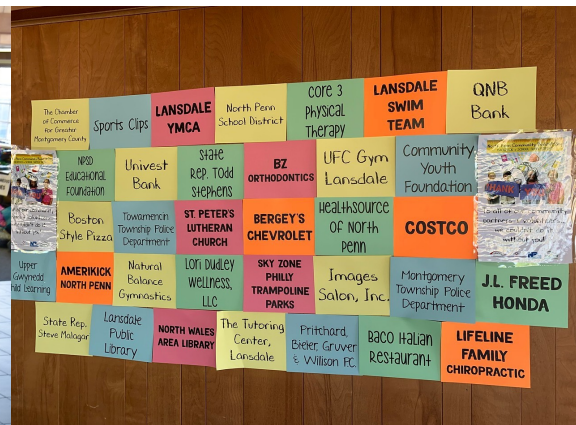 The Chamber
of Commerce
for Greater
Montgomery County
Sports Clips
LANSDALE
YMCA
North Penn
School District
Core 3
Physical
Therapy
LANSDALE
SWIM
TEAM
QNB
Bank
NPSD
Educational
Foundation
Univest
Bank
State
Rep. Todd
Stephens
BZ
ORTHODONTICS
UFC Gym
Lansdale
Community
Youth
Foundation
THANK
to all of community
without you!
Boston
Style Pizza
Towamencin
Township Police
Department
ST. PETER'S
LUTHERAN
CHURCH
BERGEY'S
CHEVROLET
Healthsource
of North
Penn
COSTCO
Upper
Gwynedd
Child Learning
AMERIKICK
NORTH PENN
Natural
Balance
Gymnastics
Lori Dudley
Wellness,
LLC
SKY ZONE
PHILLY
TRAMPOLINE
PARKS
Images
Salon, Inc.
Montgomery
Township Police
Department
J.L. FREED
HONDA
State Rep.
Steve Malagari
Lansdale
Public
Library
NORTH WALES
AREA LIBRARY
The Tutoring
Center,
Lansdale
Pritchard,
Bieler, Gruver
& Willison P.C.
Baco Italian
Restaurant
LIFELINE
FAMILY
CHIROPRACTIC